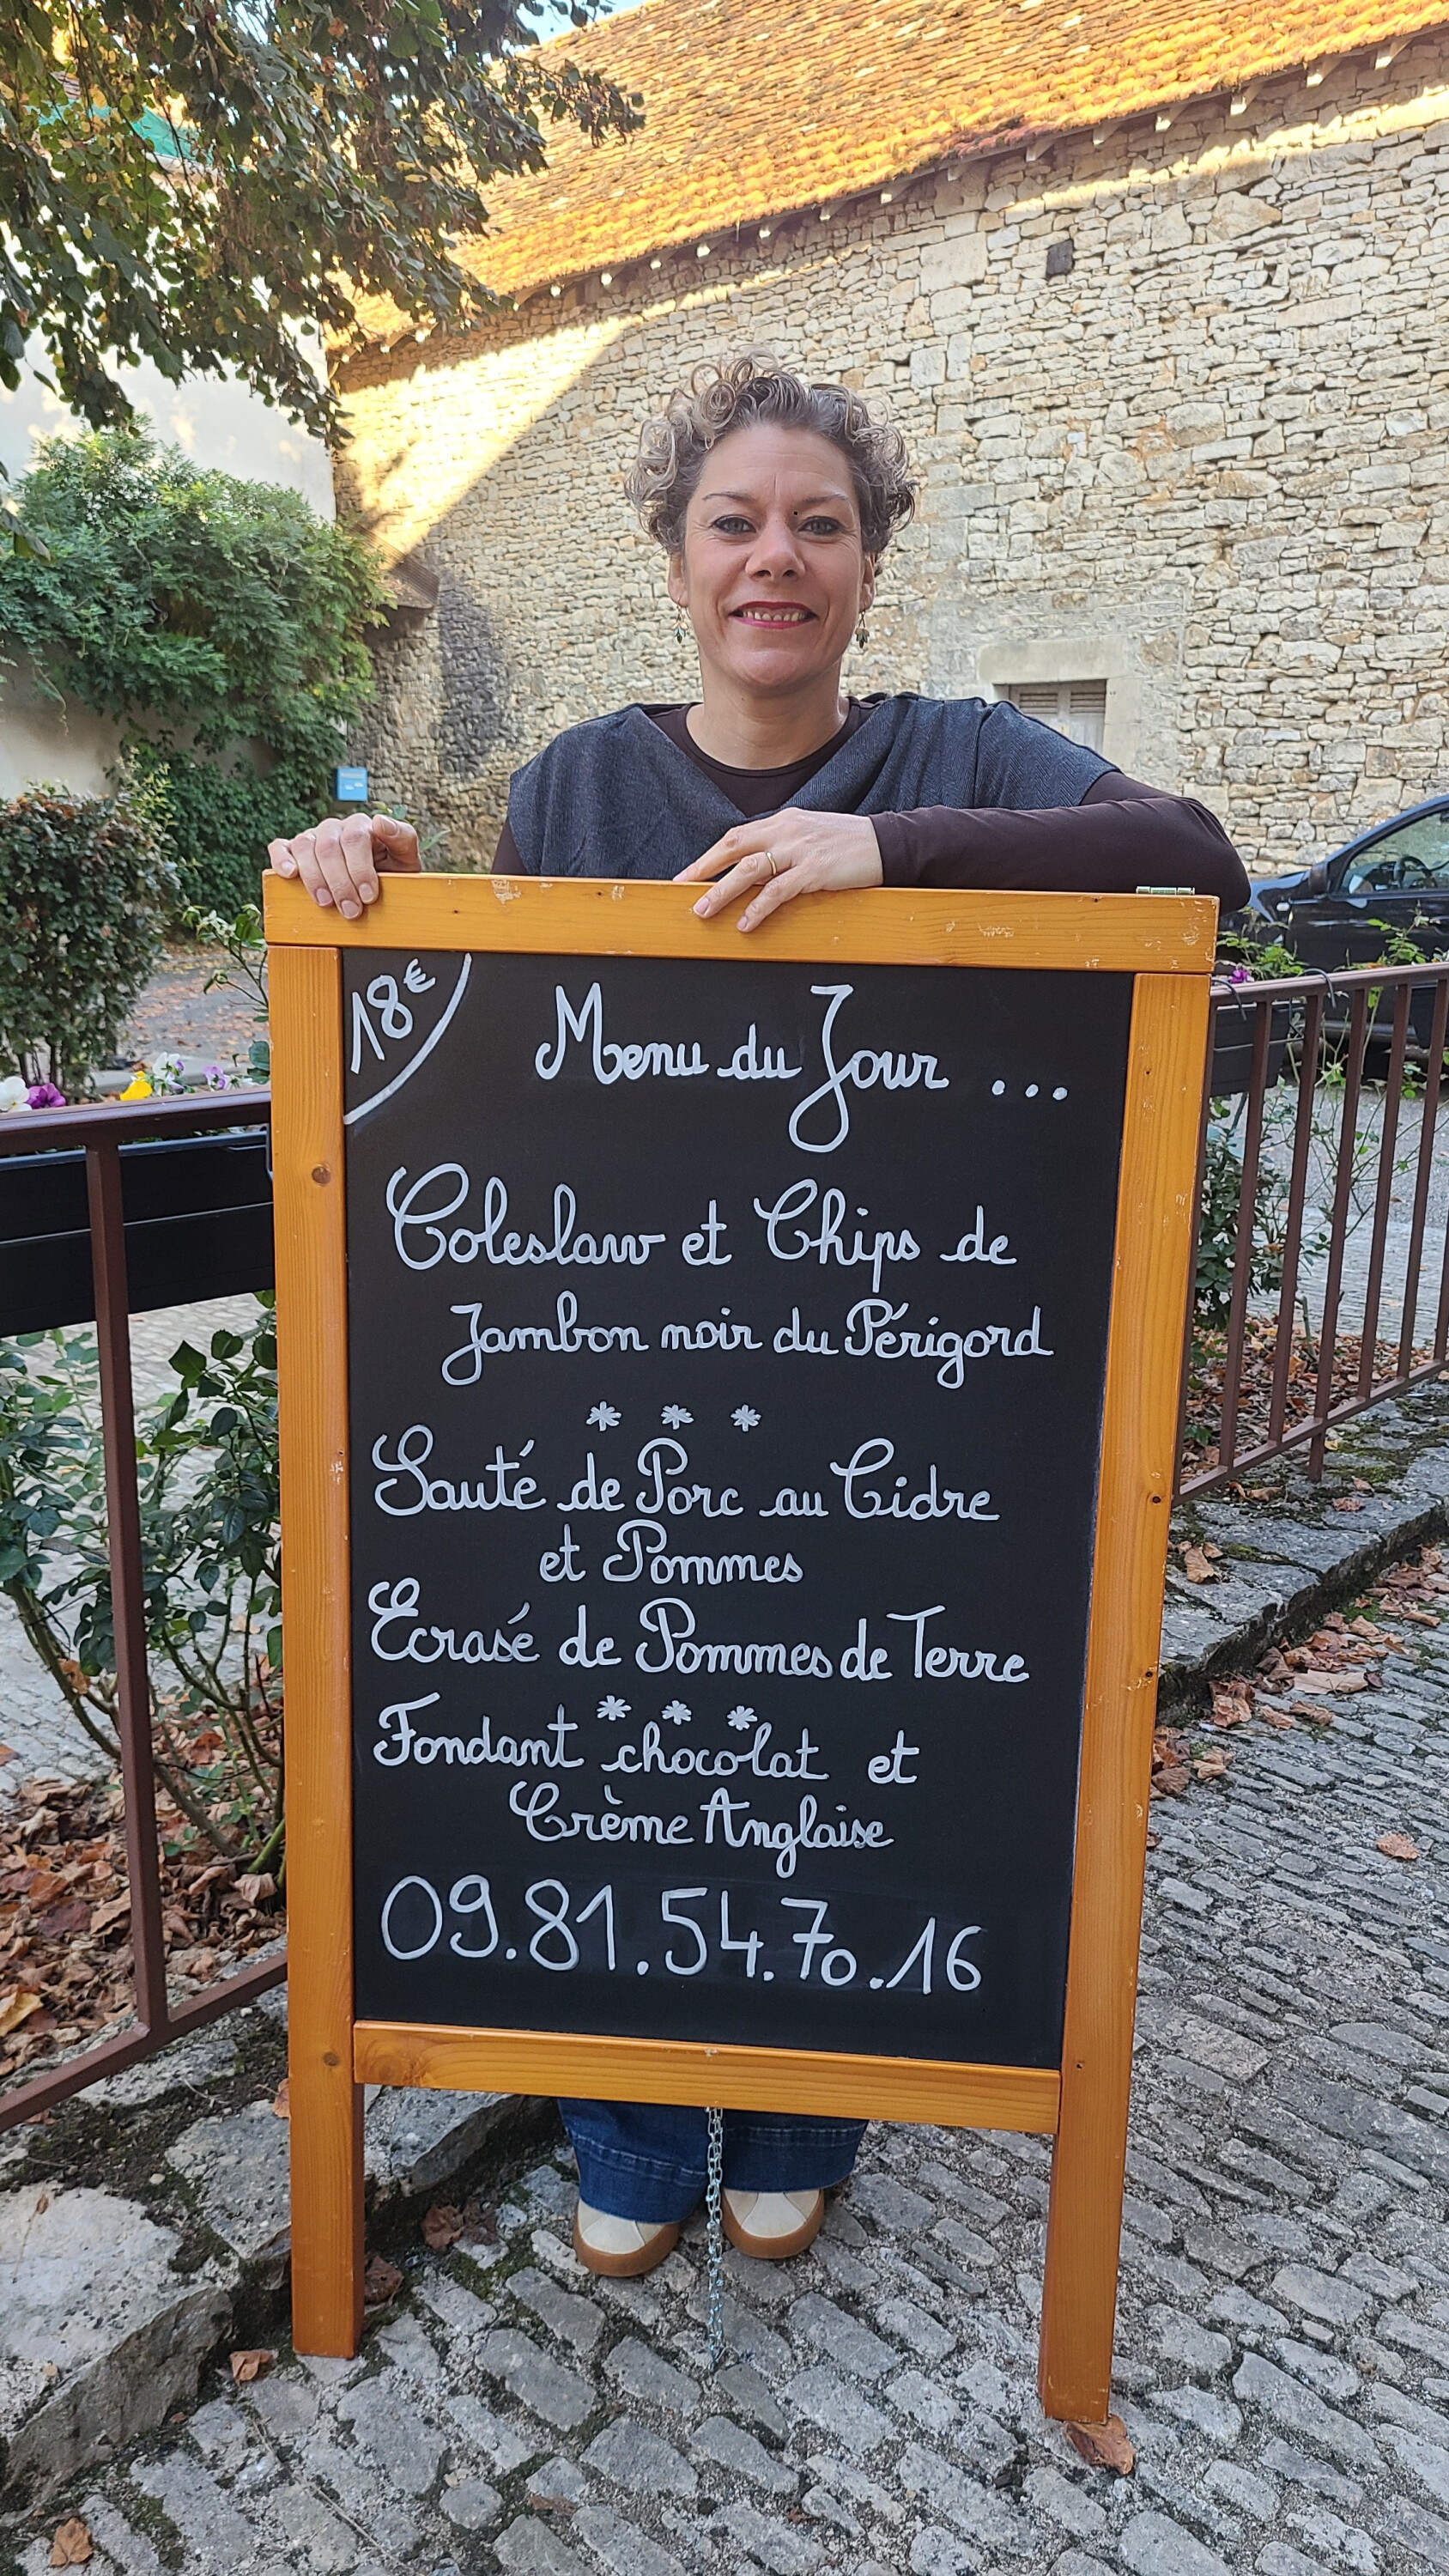 18€
Menu du Jour ...
Coleslaw et Chips de
Jambon noir du Périgord
* * *
Sauté de Porc au Cidre
et Pommes
Ecrasé de Pommes de Terre
* * *
Fondant chocolat et
Crème Anglaise
09.81.54.70.16